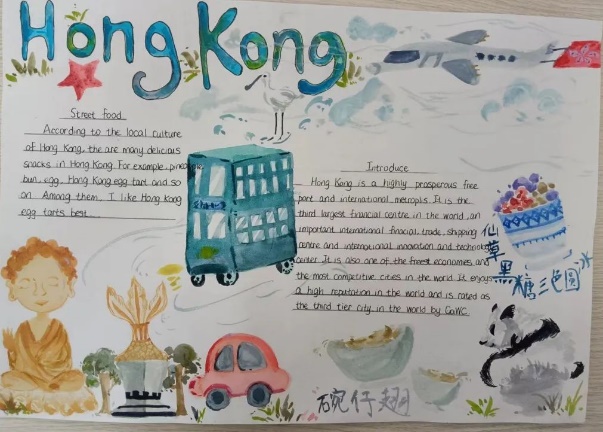 Hong Kong
Street Food
According to the local culture
of Hong Kong, the are many delicious
snacks in Hong Kong. For example, pineapple
bun, egg, Hong Kong egg tart and so
on. Among them, I like Hong Kong
egg tarts best.
Introduce
Hong Kong is a highly prosperous free
port and international metroplis. It is the
third largest financial centre in the world, an
important international finacial, trade, shipping
centre and international innovation and technology
center. It is also one of the freest economies and
the most competitive cities in the world. It enjoys
a high reputation in the world and is rated as
the third tier city in the world by GaWC.
仙草黑糖三色圆
碗仔翅